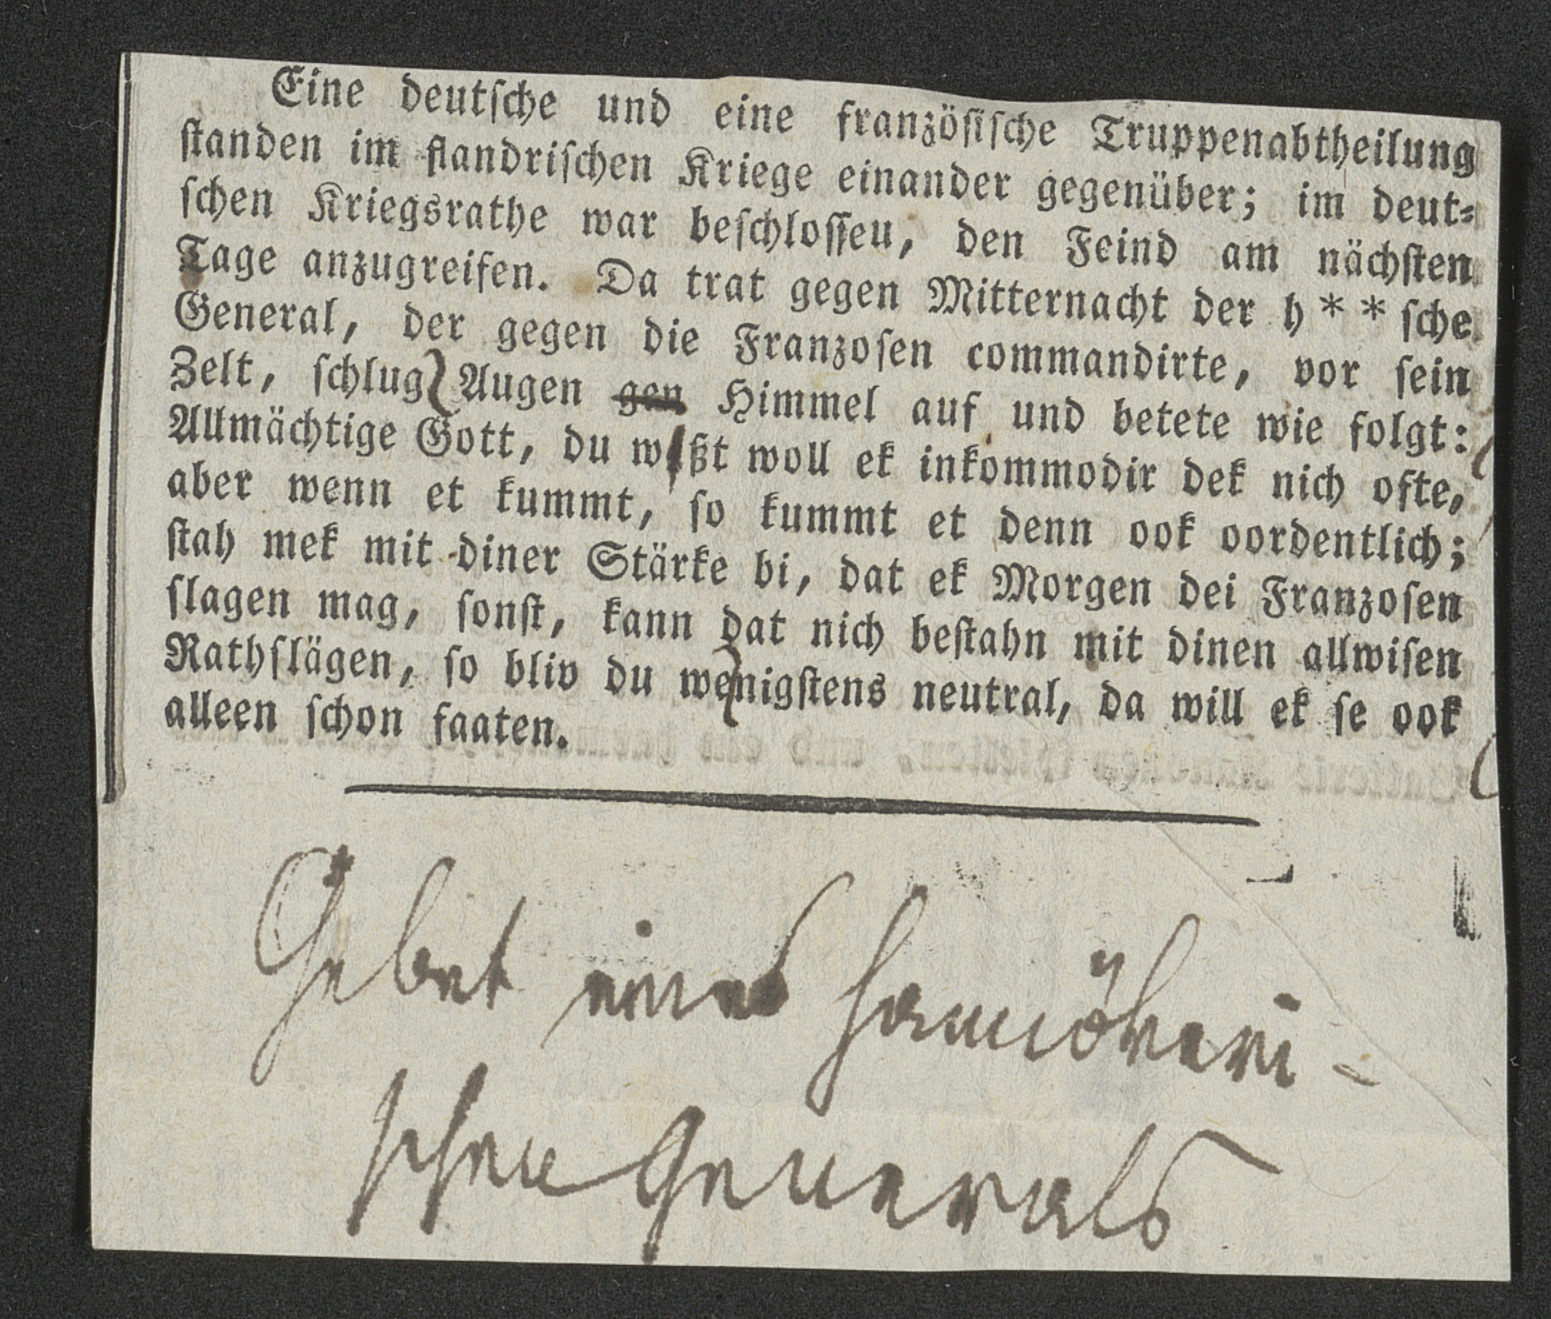 Eine deutsche und eine französische Truppenabtheilung
standen im flandrischen Kriege einander gegenüber; im deut-
schen Kriegsrathe war beschlosseu, den Feind am nächsten
Tage anzugreifen. Da trat gegen Mitternacht der h**sche
General, der gegen die Franzosen commandirte, vor sein
Zelt, schlug Augen gen Himmel auf und betete wie folgt:
Allmächtige Gott, du wßt woll ek inkommodir dek nich ofte,
aber wenn et kummt, so kummt et denn ook oordentlich;
stah mek mit diner Stärke bi, dat ek Morgen dei Franzosen
slagen mag, sonst, kann dat nich bestahn mit dinen allwisen
Rathslägen, so bliv du wenigstens neutral, da will ek se ook
alleen schon faaten.
Gebet eines hannöveri-
schen Generals